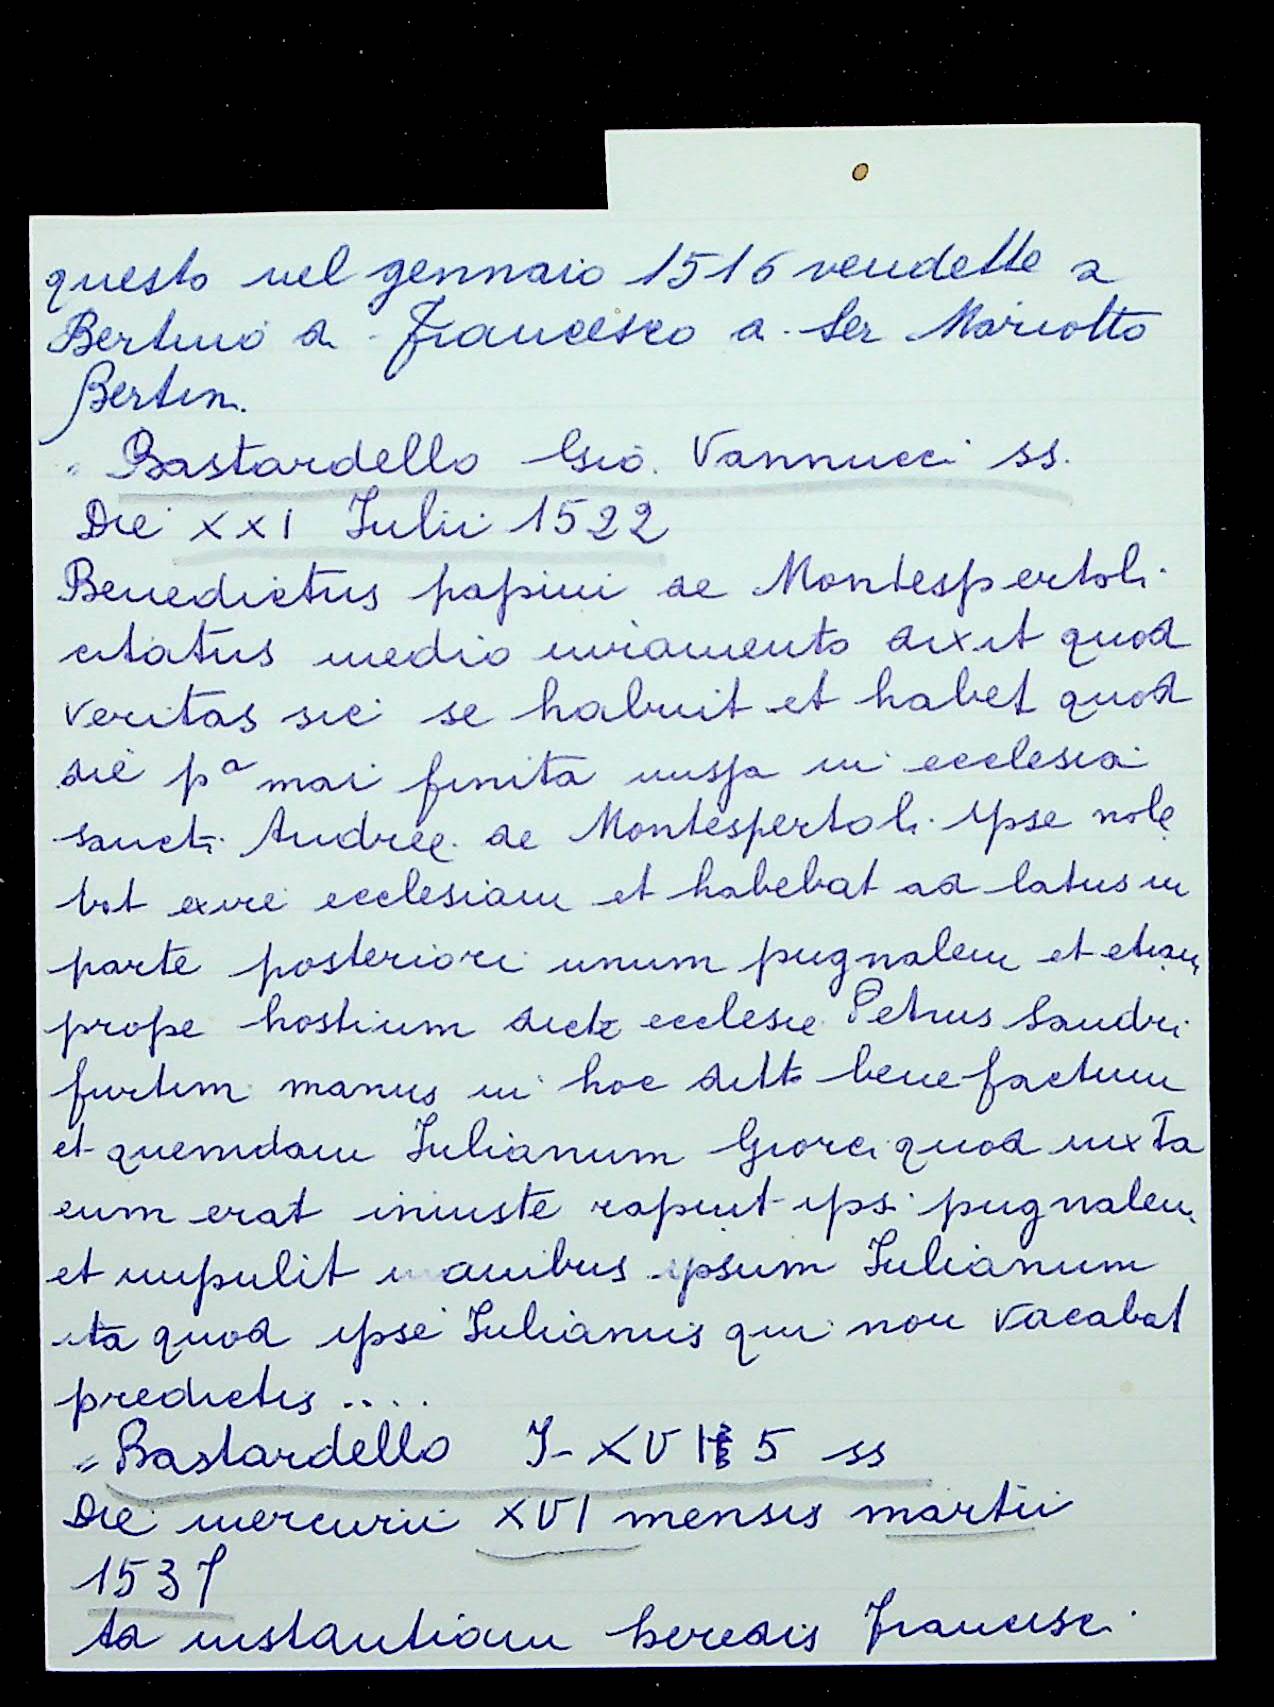 questo nel gennaio 1516 vendette a
Bertino di Francesco di Ser Mariotto
Bertin.
" Bastardello Gio. Vannucci ss.
Die XXI Iulii 1522
Benedictus papini de Montespertoli
citatus medio iuramento dixit quod
veritas sic se habuit et habet quod
die pª mai finita missa in ecclesia
sancti Andree de Montespertoli ipse nole
bat exire ecclesiam et habebat ad latus in
parte posteriori unum pugnalem et etiam
prope hostium dicte ecclesie Petrus Sandri
furtim manus in hoc ditto benefactum
et quemdam Iulianum Giorci quod iuxta
eum erat iniuste rapuit ipsi pugnalem
et impulit manibus ipsum Iulianum
ita quod ipse Iulianus qui non vacabat
predictis ....
" Bastardello I-XVI 5 ss
Die mercurii XVI mensis martii
1537
Ad instantiam heredis Francisci